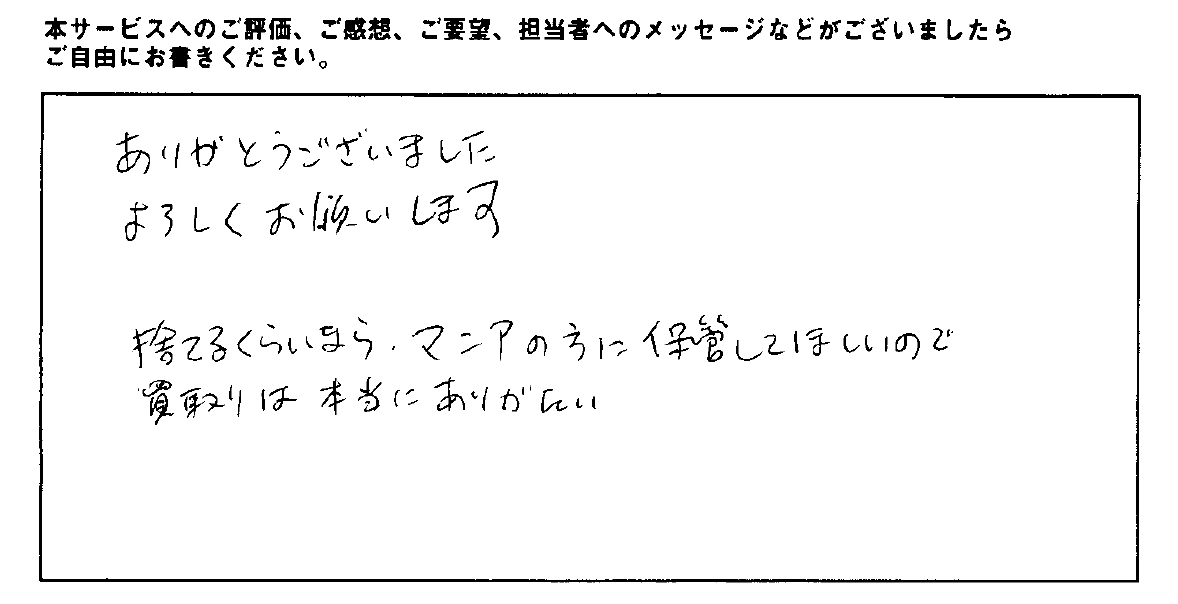 本サービスへのご評価、ご感想、ご要望、担当者へのメッセージなどがございましたら
ご自由にお書きください。
ありがとうございました
よろしくお願いします
捨てるくらいなら、マニアの方に保管してほしいので
買取りは本当にありがたい